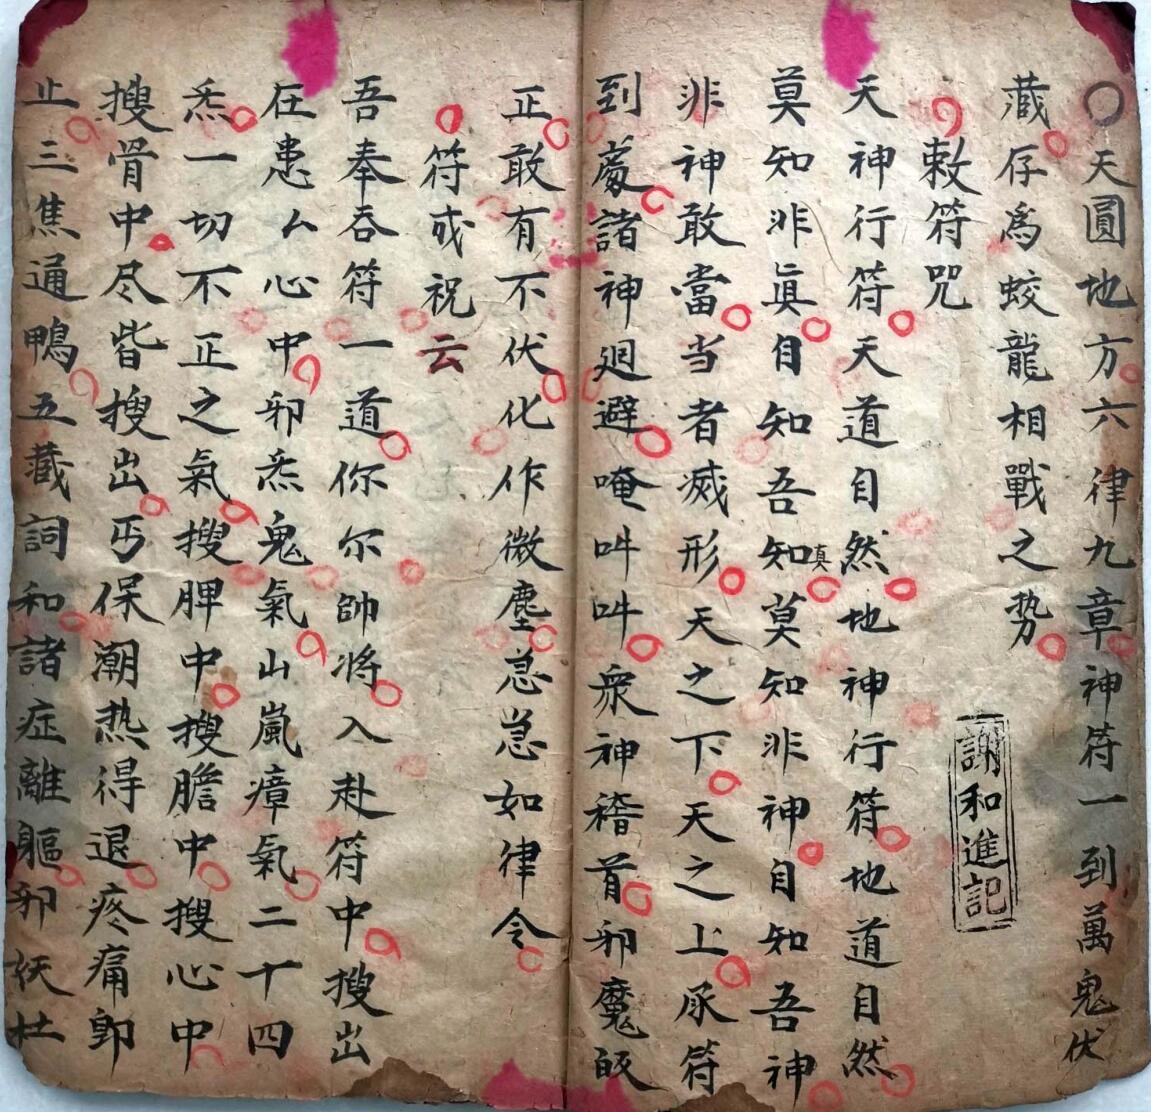 〇天圓地方六律九章神符一到萬鬼伏
藏存爲蛟龍相戰之势
敕符咒
謝和進記
天神行符天道自然地神行符地道自然
莫知非眞自知吾知真莫知非神自知吾神
非神敢當当者滅形天之下天之上承符
到處諸神迴避唵吽吽衆神稽首邪魔皈
正敢有不伏化作微塵急急如律令
符或祝云
吾奉吞符一道你尔帥将入赴符中搜出
在患厶心中邪炁鬼氣山嵐瘴氣二十四
炁一切不正之氣搜脾中搜膽中搜心中
搜骨中尽皆搜出丐保潮热得退疼痛卽
止三焦通鴨五藏詞和諸症離軀邪妖杜